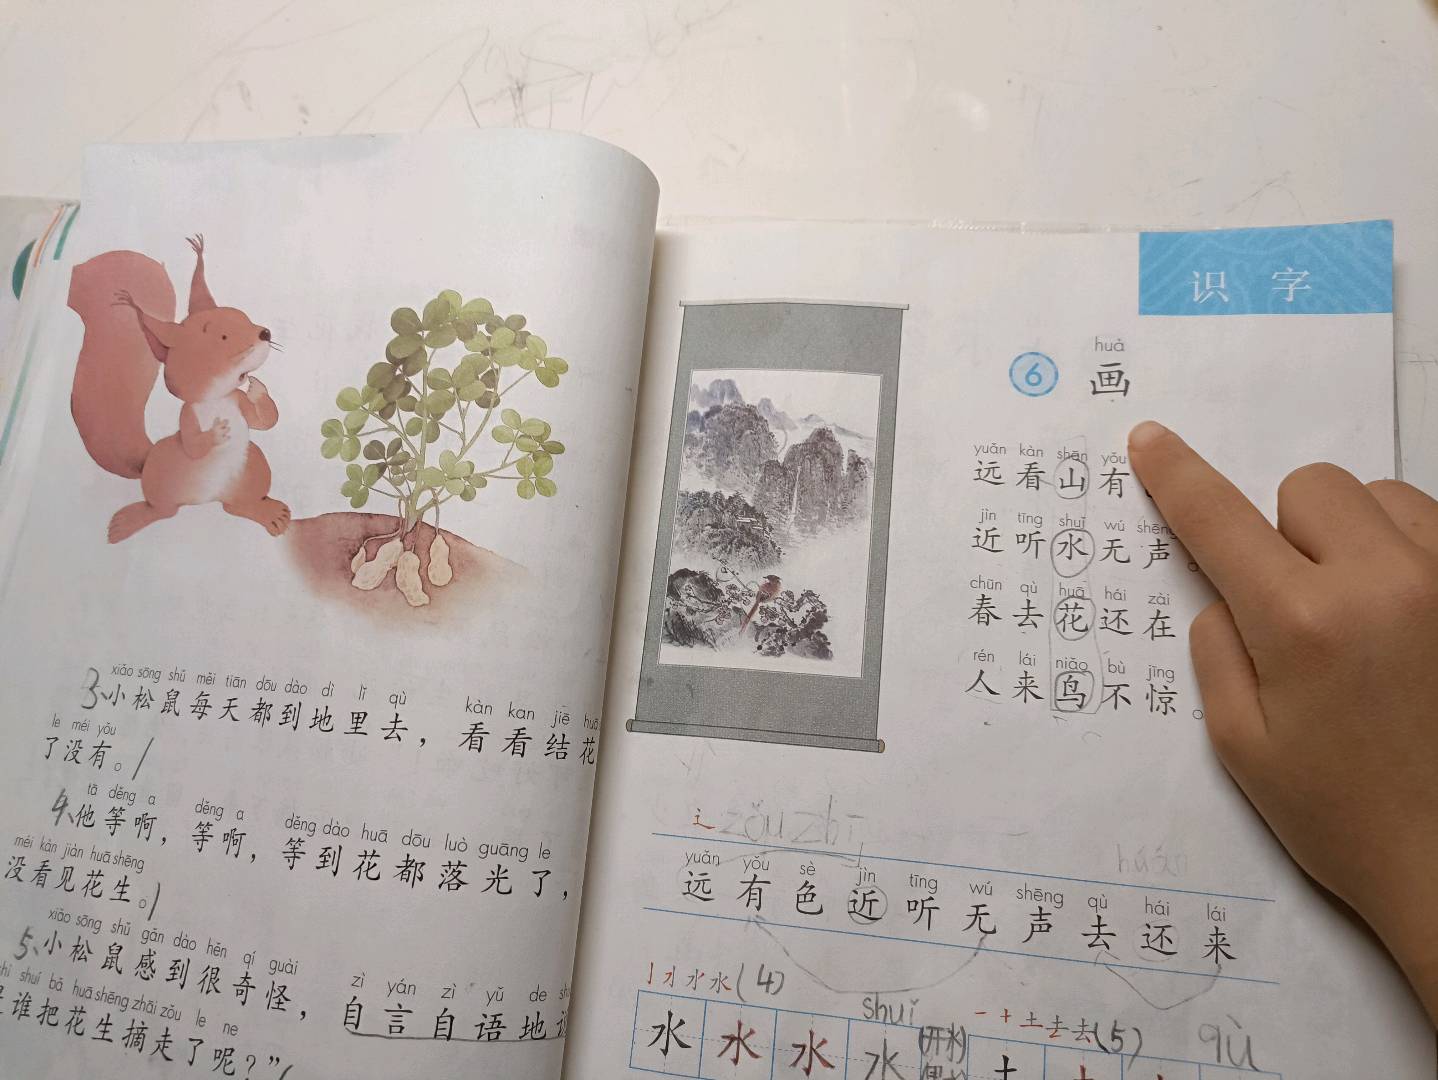 xiǎo sōng shǔ měi tiān dōu dào dì lǐ qù kàn kan jiē huā
3、小松鼠每天都到地里去，看看结花
le méi yǒu
了没有。/
tā děng a děng a děng dào huā dōu luò guāng le
4、他等啊，等啊，等到花都落光了，
méi kàn jiàn huā shēng
没看见花生。/
xiǎo sōng shǔ gǎn dào hěn qí guài zì yán zì yǔ de
5、小松鼠感到很奇怪，自言自语地
shuí bǎ huā shēng zhāi zǒu le ne
谁把花生摘走了呢？”
识字
huà
6 画
yuǎn kàn shān yǒu
远看山有
jìn tīng shuǐ wú shēng
近听水无声。
chūn qù huā hái zài
春去花还在
rén lái niǎo bù jīng
人来鸟不惊。
辶 zǒu zhī
huán
yuǎn yǒu sè jìn tīng wú shēng qù hái lái
远有色近听无声去还来
(4)
shuǐ
(5)
qù
水水水水(开水)